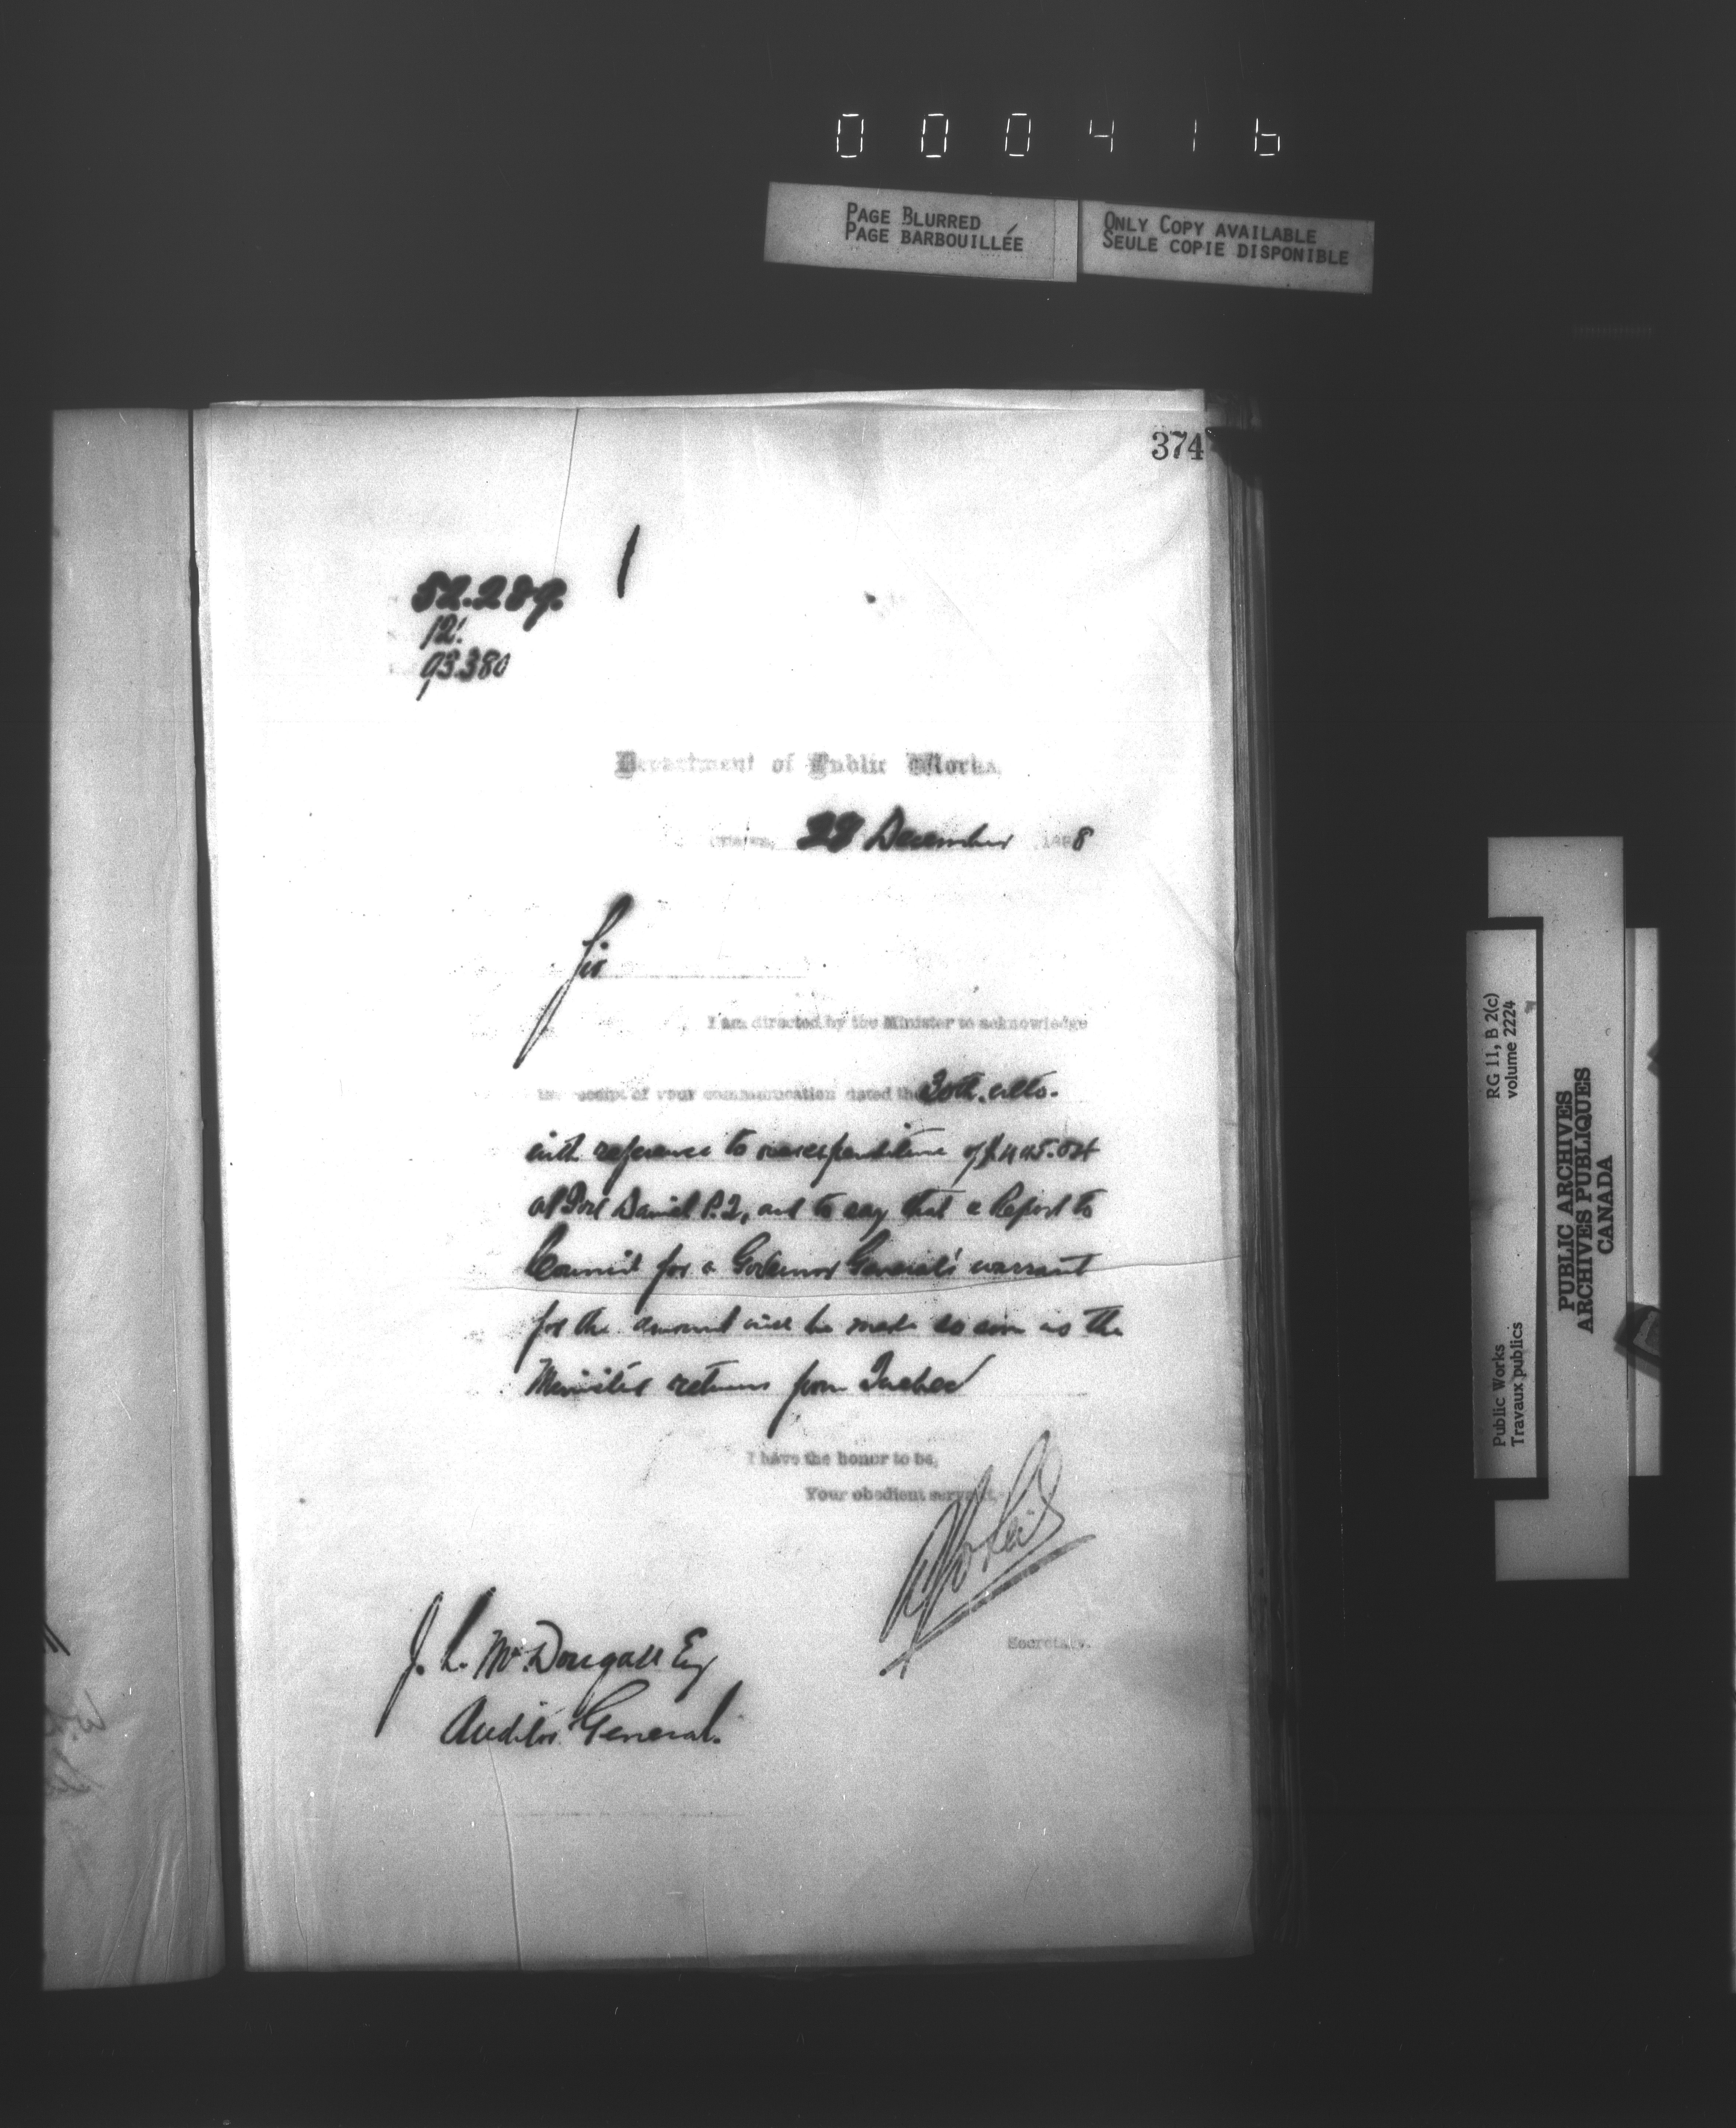 000416
PAGE BLURRED
PAGE BARBOUILLÉE
ONLY COPY AVAILABLE
SEULE COPIE DISPONIBLE
374
52.289.
12!
93380
Department of Public Works,
Ottawa, 28 December 1898
Sir
I am directed by the Minister to acknowledge
the receipt of your communication dated the 30th. ulto.
with reference to overexpenditure of
at Port Daniel P.Q, and to say that a Report to
Council for a Governor General's warrant
for the amount will be made so soon as the
Minister returns from Quebec
I have the honor to be,
Your obedient servant,
Secretary.
J. L. McDougall Esq
Auditor General.
RG 11, B 2(c)
volume 2224
Public Works
Travaux publics
PUBLIC ARCHIVES
ARCHIVES PUBLIQUES
CANADA